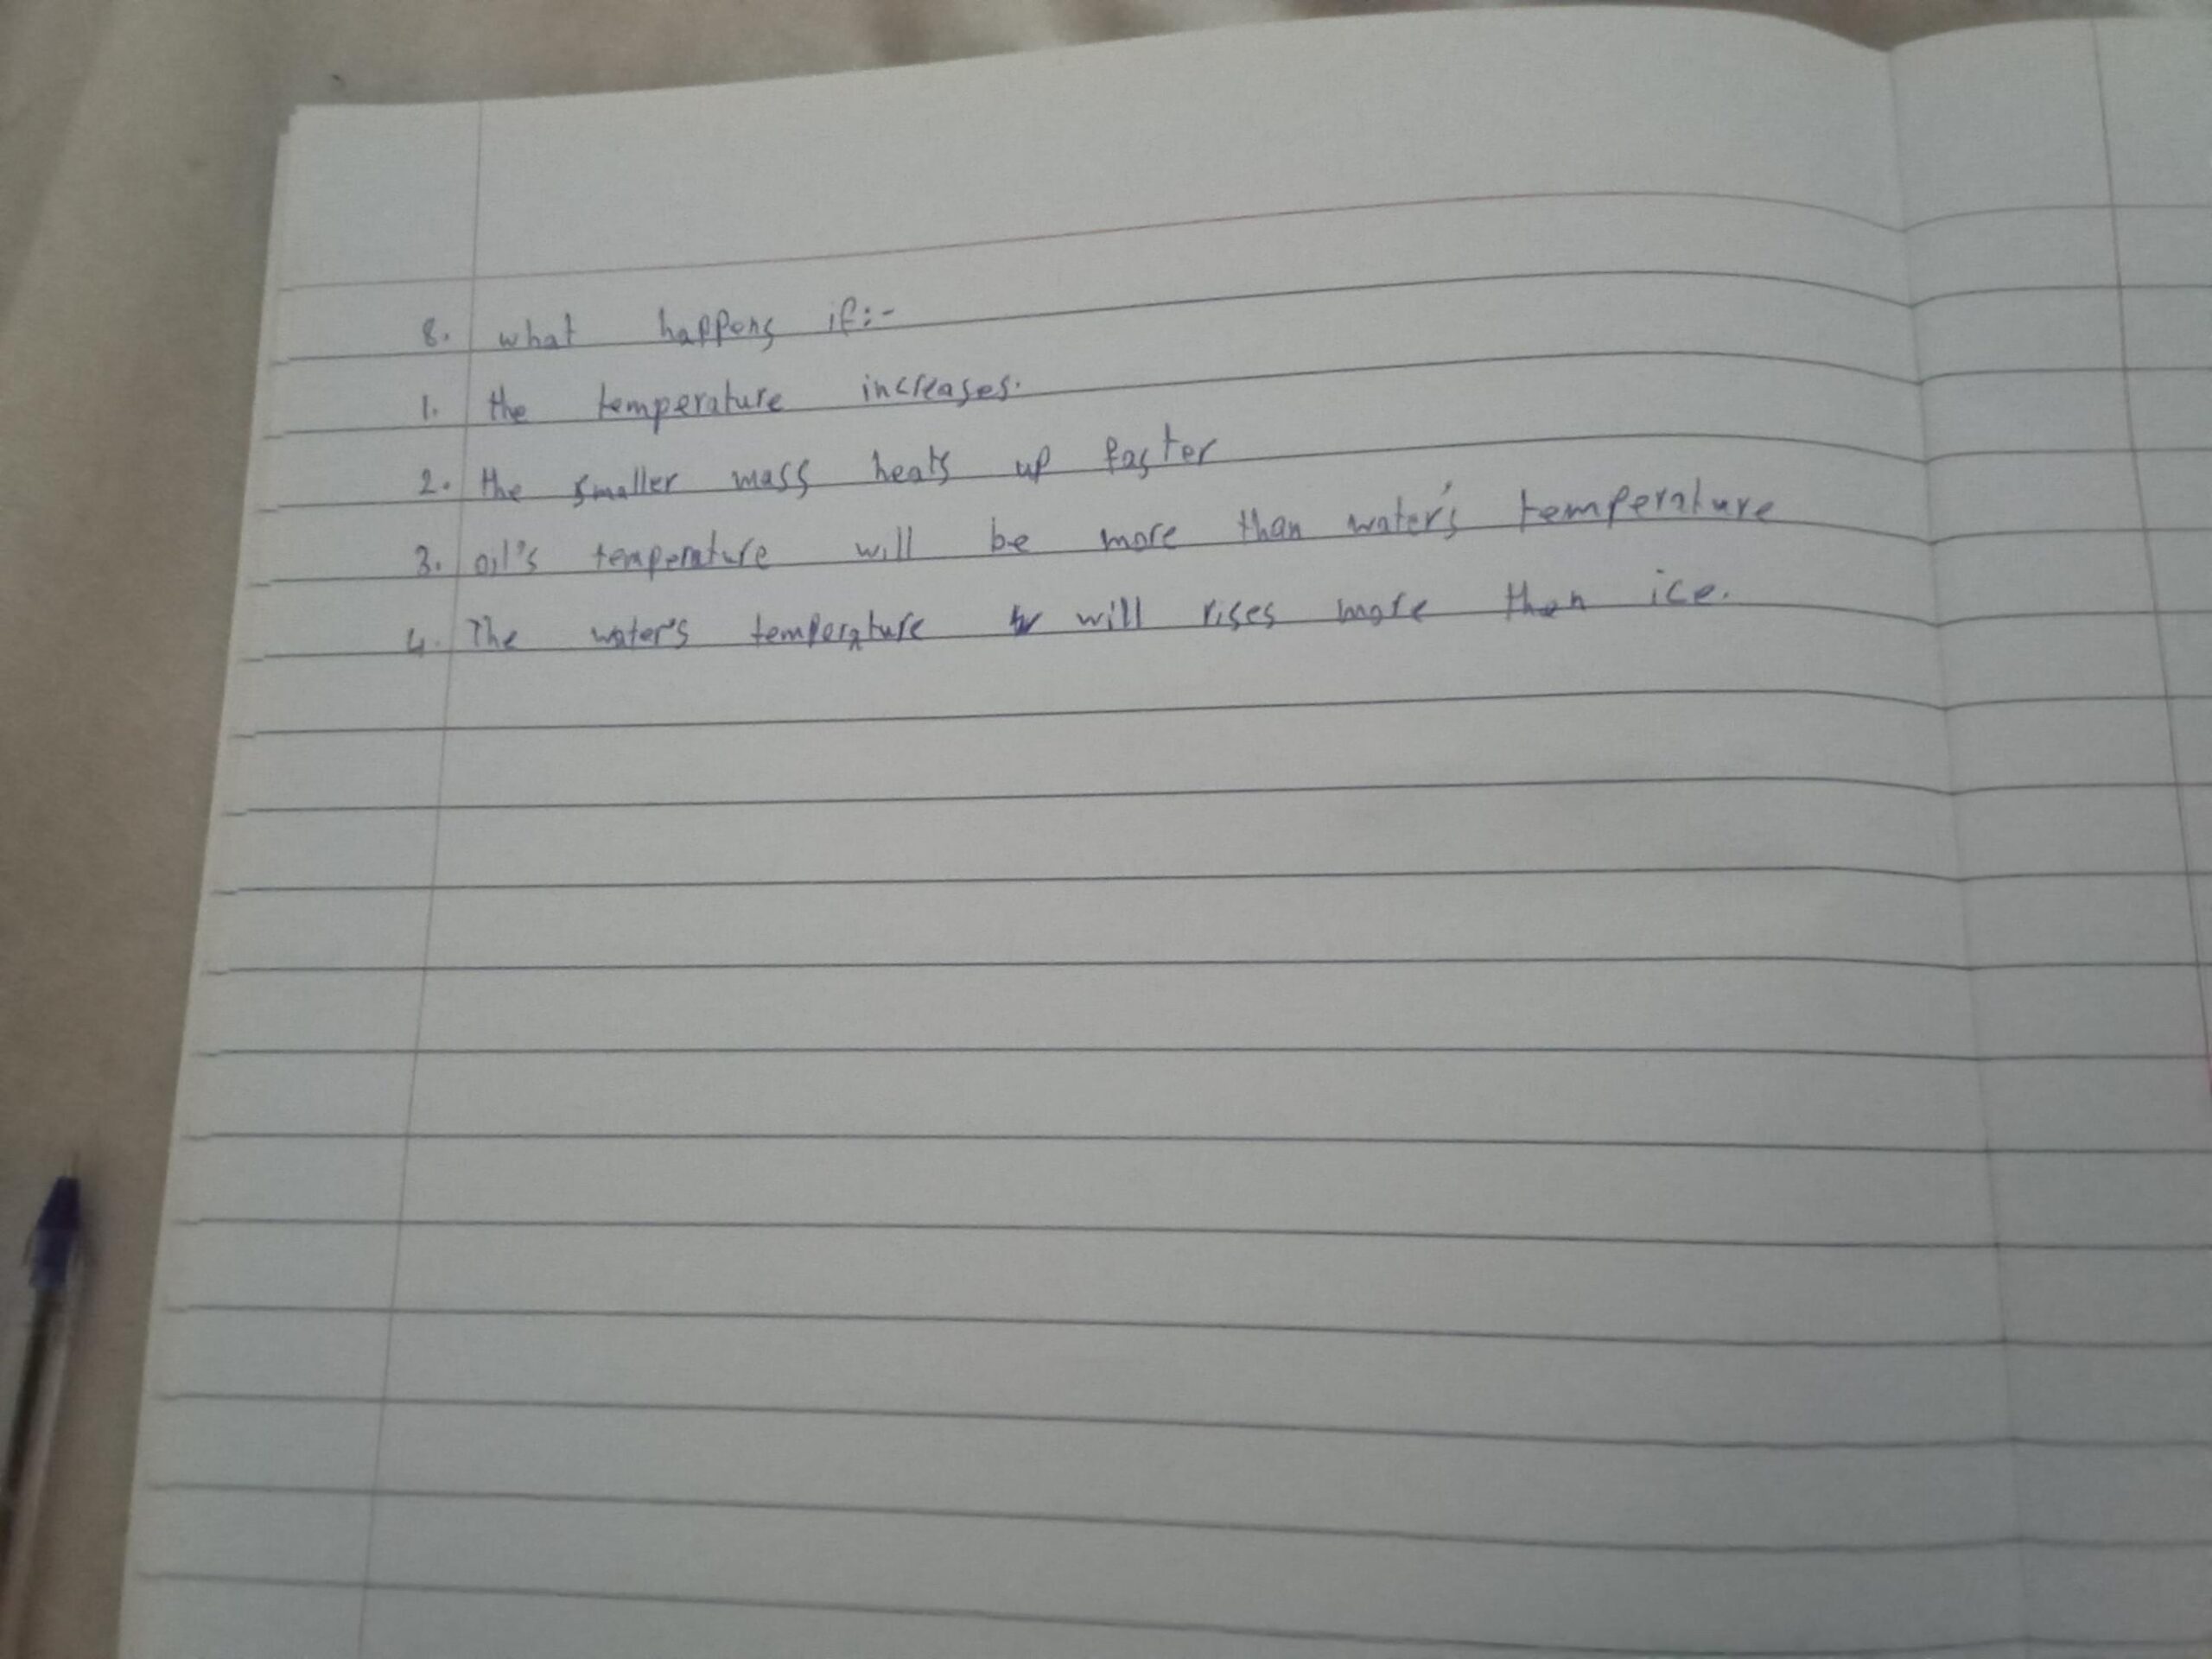 8. what happens if:-
1. the temperature increases.
2. the smaller mass heats up faster
3. oil's temperature will be more than water's temperature
4. The water's temperature will rises more than ice.